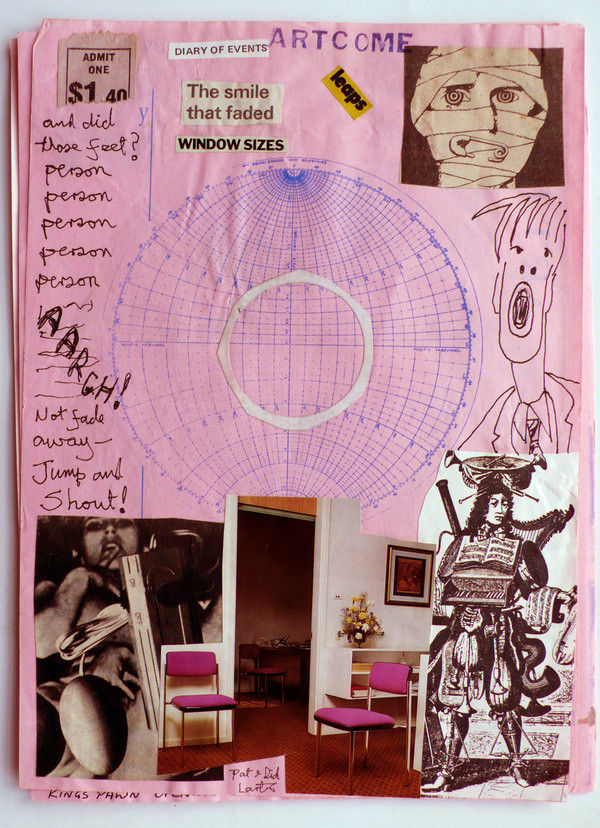 ARTCOME
DIARY OF EVENTS
ADMIT
ONE
$1.40
The smile
that faded
leaps
WINDOW SIZES
and did
those feet?
person
person
person
person
person
AAR
GH!
Not fade
away –
Jump and
Shout!
KINGS PAWN